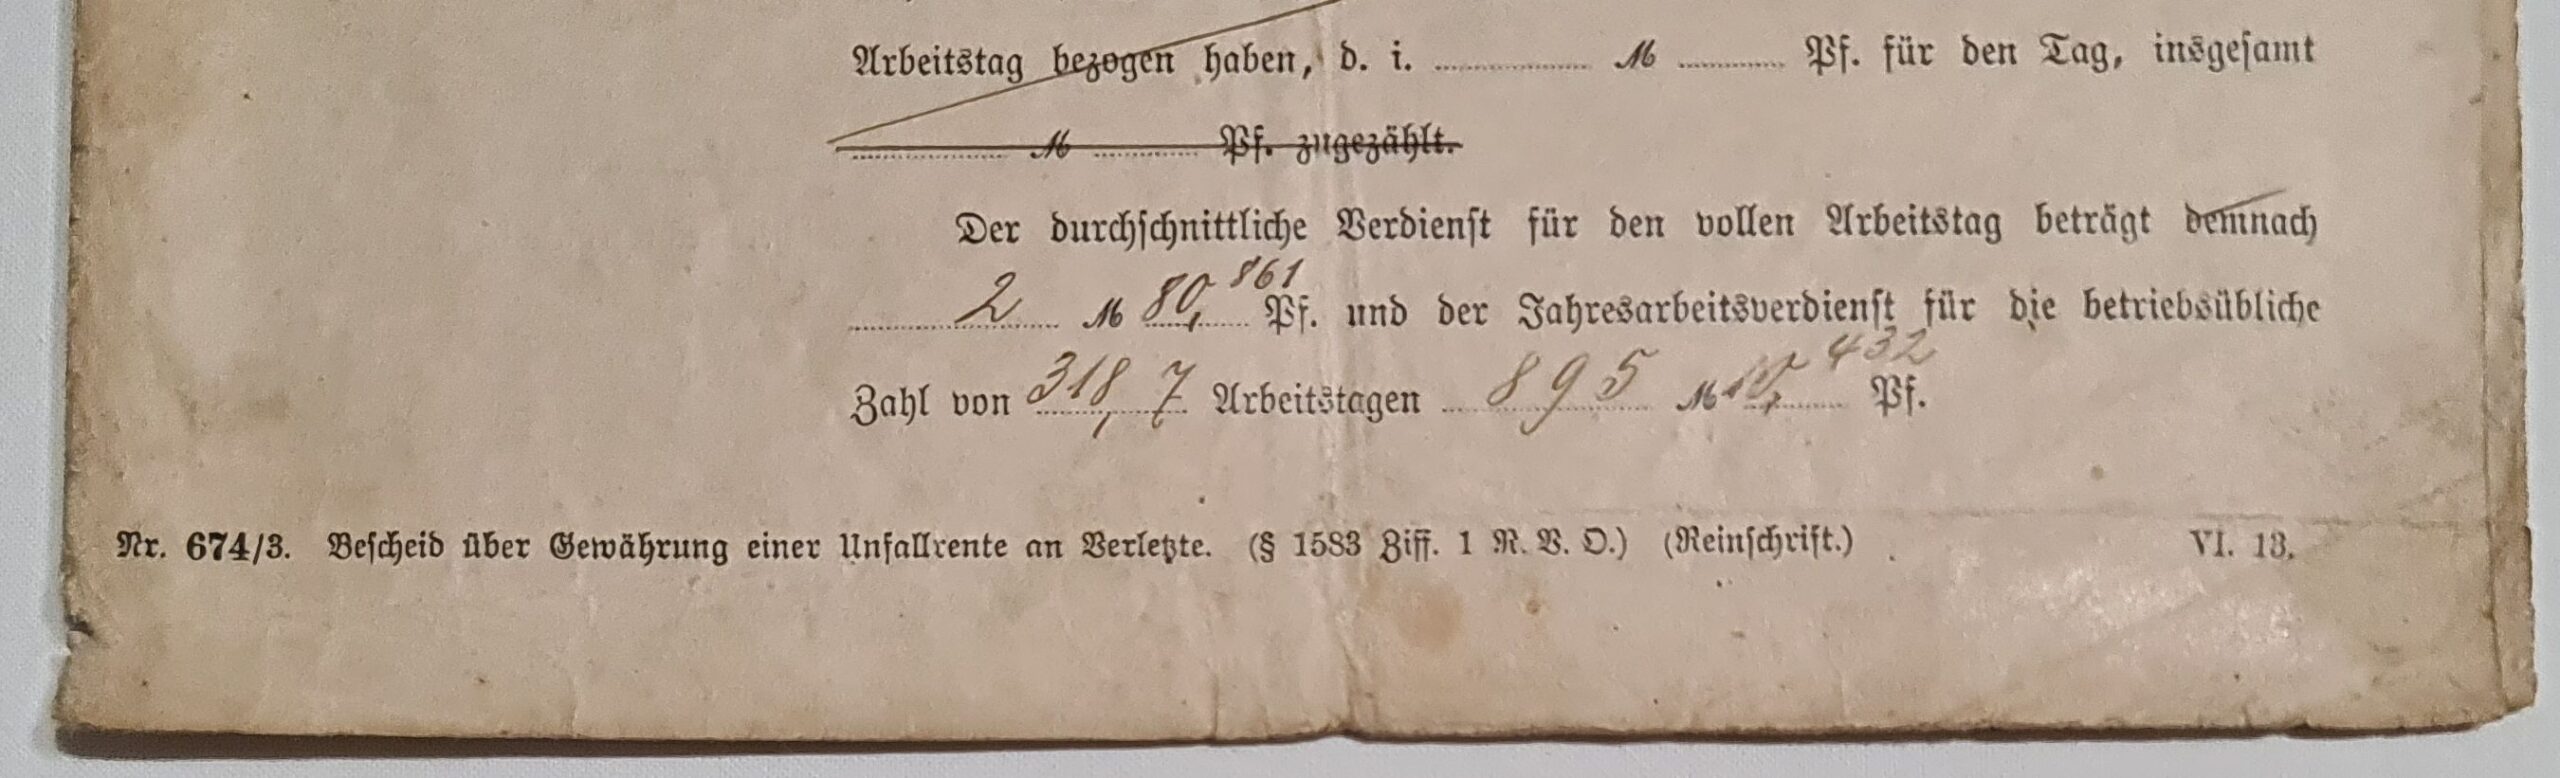 Arbeitstag bezogen haben, d. i. ........ ℳ ........ Pf. für den Tag, insgesamt
........ ℳ ........ Pf. zugezählt.
Der durchschnittliche Verdienst für den vollen Arbeitstag beträgt demnach
2 ℳ 80,861 Pf. und der Jahresarbeitsverdienst für die betriebsübliche
Zahl von 318,7 Arbeitstagen 895 ℳ 10,432 Pf.
Nr. 674/3. Bescheid über Gewährung einer Unfallrente an Verletzte. (§ 1583 Ziff. 1 R. V. O.) (Reinschrift.) VI. 13.